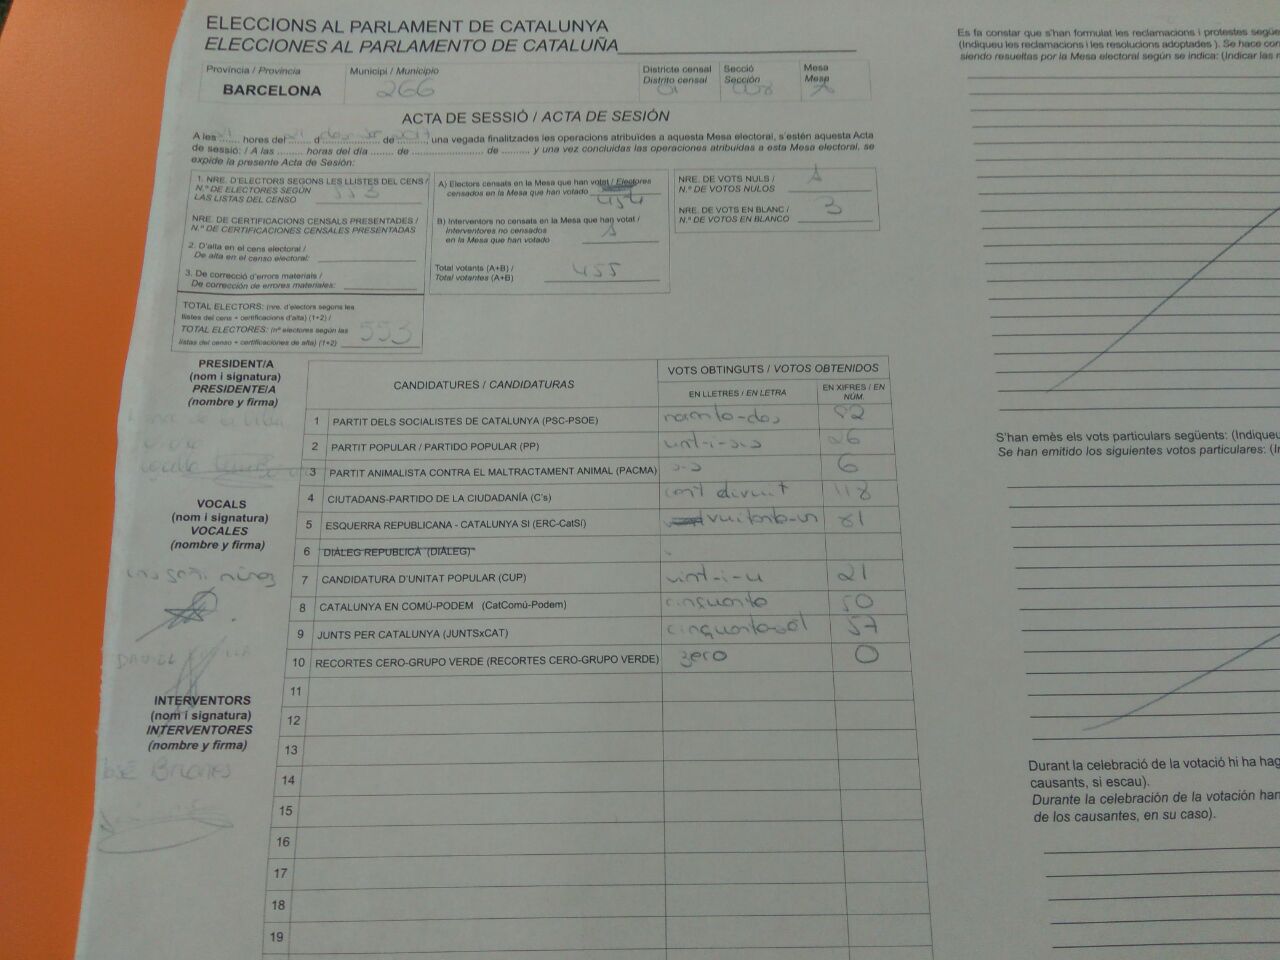 ELECCIONS AL PARLAMENT DE CATALUNYA
ELECCIONES AL PARLAMENTO DE CATALUÑA
Província / Provincia
BARCELONA
Municipi / Municipio
266
Districte censal
Distrito censal
01
Secció
Sección
Mesa
Mesa
A
ACTA DE SESSIÓ / ACTA DE SESIÓN
A les ....... hores del ..... d ............... de ........, una vegada finalitzades les operacions atribuïdes a aquesta Mesa electoral, s'estén aquesta Acta
de sessió: / A las ........ horas del día ........ de ............................ de .......... y una vez concluidas las operaciones atribuidas a esta Mesa electoral, se
expide la presente Acta de Sesión:
1. NRE. D'ELECTORS SEGONS LES LLISTES DEL CENS /
N.º DE ELECTORES SEGÚN
LAS LISTAS DEL CENSO 553
NRE. DE CERTIFICACIONS CENSALS PRESENTADES /
N.º DE CERTIFICACIONES CENSALES PRESENTADAS
2. D'alta en el cens electoral /
De alta en el censo electoral:
3. De correcció d'errors materials /
De corrección de errores materiales:
TOTAL ELECTORS: (nre. d'electors segons les
llistes del cens + certificacions d'alta) (1+2) /
TOTAL ELECTORES: (nº electores según las
listas del censo + certificaciones de alta) (1+2) 553
A) Electors censats en la Mesa que han votat / Electores
censados en la Mesa que han votado 454
B) Interventors no censats en la Mesa que han votat /
Interventores no censados
en la Mesa que han votado 1
Total votants (A+B) /
Total votantes (A+B) 455
NRE. DE VOTS NULS /
N.º DE VOTOS NULOS 1
NRE. DE VOTS EN BLANC /
N.º DE VOTOS EN BLANCO 3
PRESIDENT/A
(nom i signatura)
PRESIDENTE/A
(nombre y firma)
VOCALS
(nom i signatura)
VOCALES
(nombre y firma)
INTERVENTORS
(nom i signatura)
INTERVENTORES
(nombre y firma)
JOSÉ BRIONES
CANDIDATURES / CANDIDATURAS
VOTS OBTINGUTS / VOTOS OBTENIDOS
EN LLETRES / EN LETRA
EN XIFRES / EN
NÚM.
1 PARTIT DELS SOCIALISTES DE CATALUNYA (PSC-PSOE) noranta-dos 92
2 PARTIT POPULAR / PARTIDO POPULAR (PP) vint-i-sis 26
3 PARTIT ANIMALISTA CONTRA EL MALTRACTAMENT ANIMAL (PACMA) sis 6
4 CIUTADANS-PARTIDO DE LA CIUDADANÍA (C's) cent divuit 118
5 ESQUERRA REPUBLICANA - CATALUNYA SI (ERC-CatSí) vuitanta-un 81
6 DIÀLEG REPUBLICÀ (DIÀLEG)
7 CANDIDATURA D'UNITAT POPULAR (CUP) vint-i-u 21
8 CATALUNYA EN COMÚ-PODEM (CatComú-Podem) cinquanta 50
9 JUNTS PER CATALUNYA (JUNTSxCAT) cinquanta-set 57
10 RECORTES CERO-GRUPO VERDE (RECORTES CERO-GRUPO VERDE) zero 0
11
12
13
14
15
16
17
18
19
Es fa constar que s'han formulat les reclamacions i protestes següe
(Indiqueu les reclamacions i les resolucions adoptades ). Se hace con
siendo resueltas por la Mesa electoral según se indica: (Indicar las r
S'han emès els vots particulars següents: (Indiqueu
Se han emitido los siguientes votos particulares: (I
Durant la celebració de la votació hi ha hag
causants, si escau).
Durante la celebración de la votación han
de los causantes, en su caso).